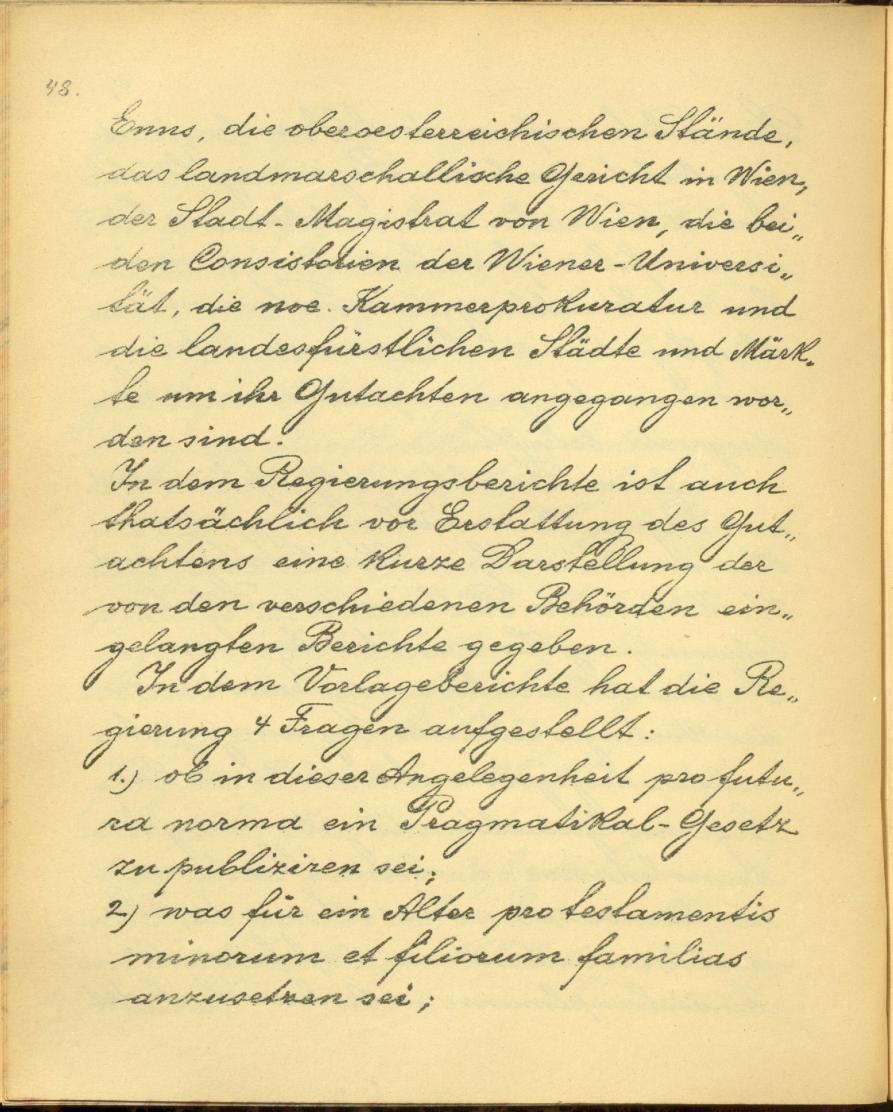 48.
Enns, die oberoesterreichischen Stände,
das landmarschallische Gericht in Wien,
der Stadt-Magistrat von Wien, die bei„
den Consistorien der Wiener-Universi„
tät, die noe. Kammerprokuratur und
die landesfürstlichen Städte und Märk„
te um ihr Gutachten angegangen wor„
den sind.
In dem Regierungsberichte ist auch
thatsächlich vor Erstattung des Gut„
achtens eine kurze Darstellung der
von den verschiedenen Behörden ein„
gelangten Berichte gegeben.
In dem Vorlageberichte hat die Re„
gierung 4 Fragen aufgestellt:
1.) ob in dieser Angelegenheit pro futu„
ra norma ein Pragmatikal-Gesetz
zu publiziren sei;
2) was für ein Alter pro testamentis
minorum et filiorum familias
anzusetzen sei;